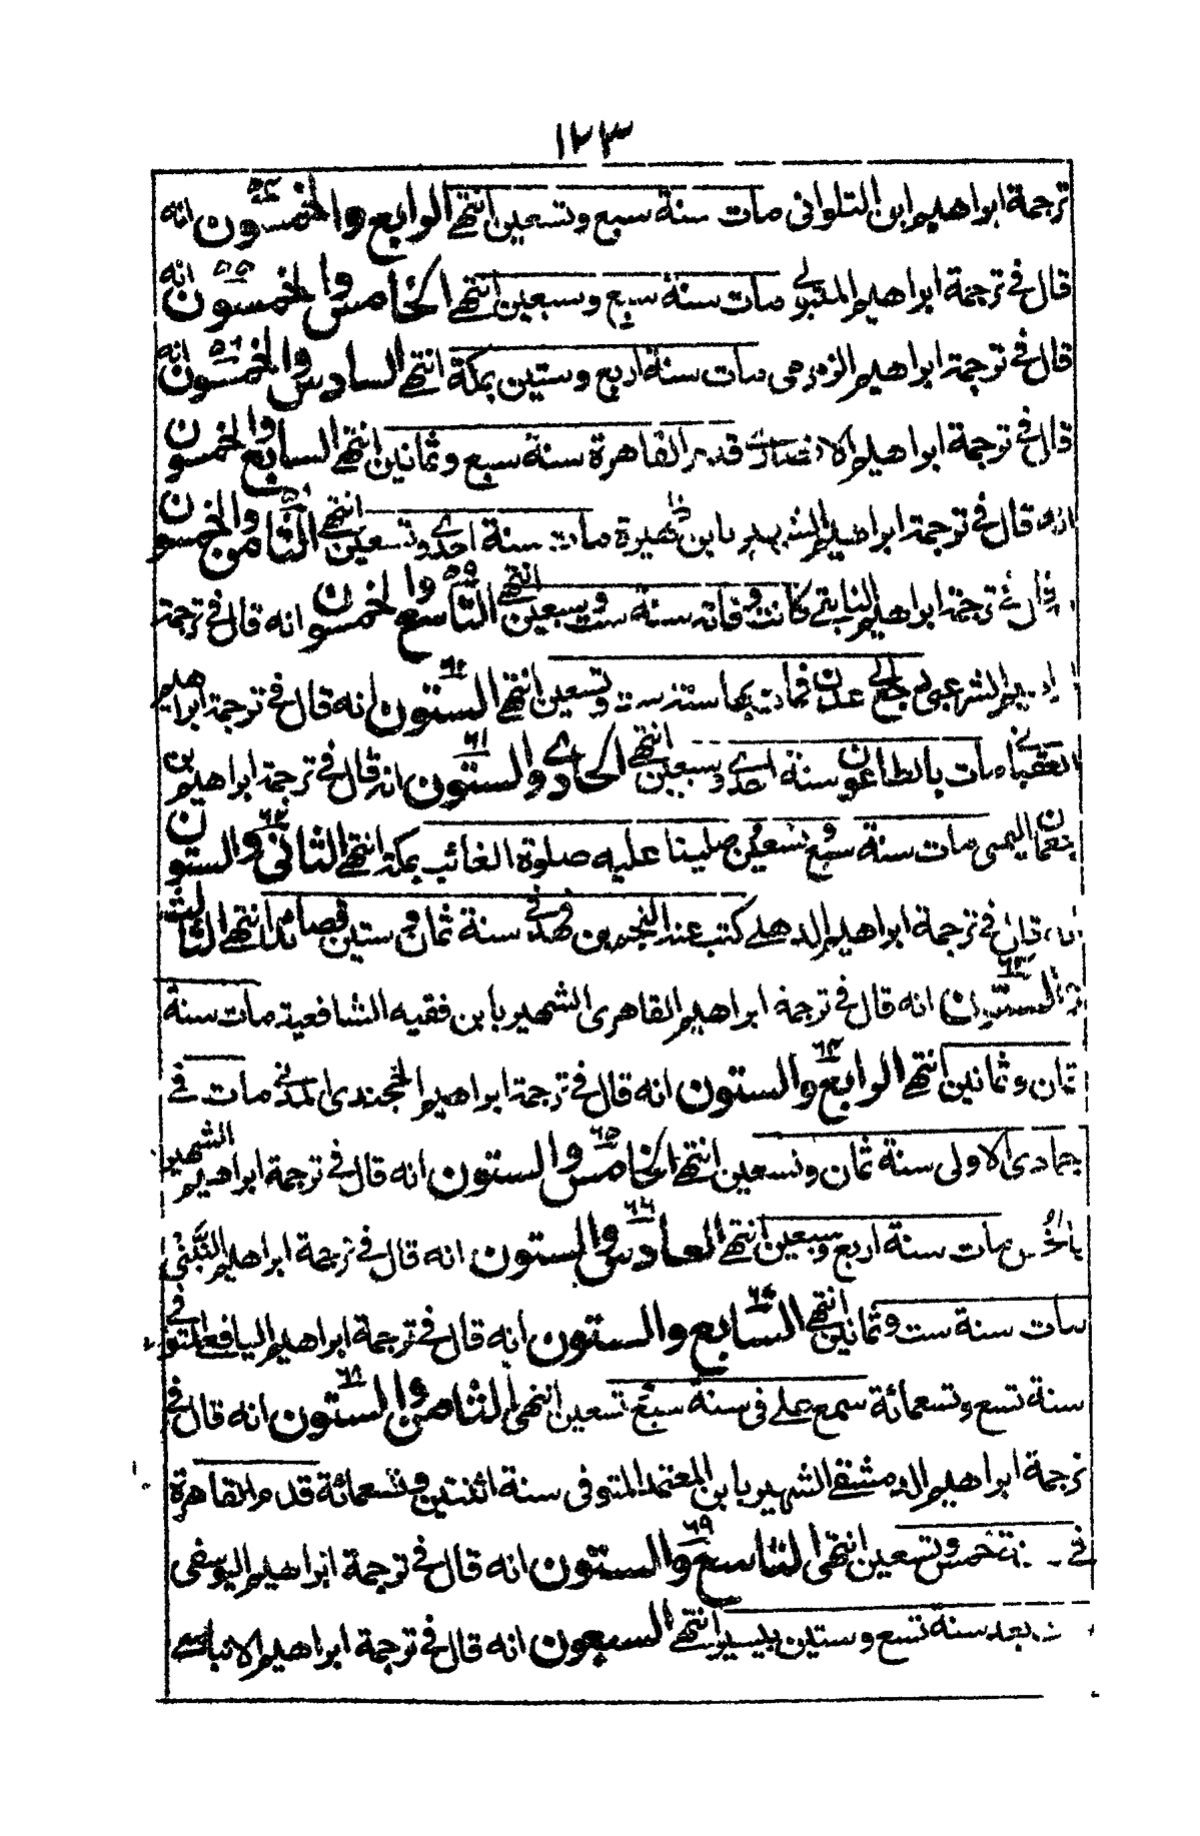 ١٢٣
ترجمة ابراهيم ابن التلوانى مات سنة سبع وتسعين انتهے الرابع والخمسون ٥٤ انه
قال فے ترجمة ابراهيم المتبولے مات سنة سبع وسبعين انتهے الخامس والخمسون ٥٥ انه
قال فے ترجمة ابراهيم الزمزمى مات سنة اربع وستين بمكة انتهے السادس والخمسون ٥٦ انه
قال فے ترجمة ابراهيم قدم القاهرة سنة سبع وثمانين انتهے السابع والخمسون
انه قال فے ترجمة ابراهيم الشهير بابن ظهيرة مات سنة احدے وتسعين انتهے الثامن والخمسون ٥٨
قال فے ترجمة ابراهيم كانت وفاته سنة ست وسبعين انتهے التاسع والخمسون ٥٩ انه قال فے ترجمة
ابراهيم الشرعبى عدن فمات بها سنة ست وتسعين انتهے الستون ٦٠ انه قال فے ترجمة ابراهيم
مات بالطاعون سنة احدے وسبعين انتهے الحادے والستون ٦١ انه قال فے ترجمة ابراهيم بن
نعمان اليمنى مات سنة سبع وتسعين صلينا عليه صلوة الغائب بمكة انتهے الثانى والستون ٦٢
انه قال فے ترجمة ابراهيم الدهلے كتب عنه النجم بن فهد فے سنة ثمان وستين قصائد انتهے الثالث
والستون ٦٣ انه قال فے ترجمة ابراهيم القاهرى الشهير بابن فقيه الشافعية مات سنة
ثمان وثمانين انتهے الرابع والستون ٦٤ انه قال فے ترجمة ابراهيم الخجندى المدنے مات فے
جمادى الاولى سنة ثمان وتسعين انتهے الخامس والستون ٦٥ انه قال فے ترجمة ابراهيم الشهير
مات سنة اربع وسبعين انتهے السادس والستون ٦٦ انه قال فے ترجمة ابراهيم
مات سنة ست وثمانين انتهے السابع والستون ٦٧ انه قال فے ترجمة ابراهيم اليافعے المتوفے
سنة تسع وتسعمائة سمع علے فى سنة سبع وتسعين انتهى الثامن والستون ٦٨ انه قال فے
ترجمة ابراهيم الدمشقے الشهير بابن المعتمد المتوفى سنة اثنتين وتسعمائة قدم القاهرة
فے سنة خمس وتسعين انتهى التاسع والستون ٦٩ انه قال فے ترجمة ابراهيم اليوسفى
مات بعد سنة تسع وستين بيسير انتهے السبعون انه قال فے ترجمة ابراهيم الانباسے